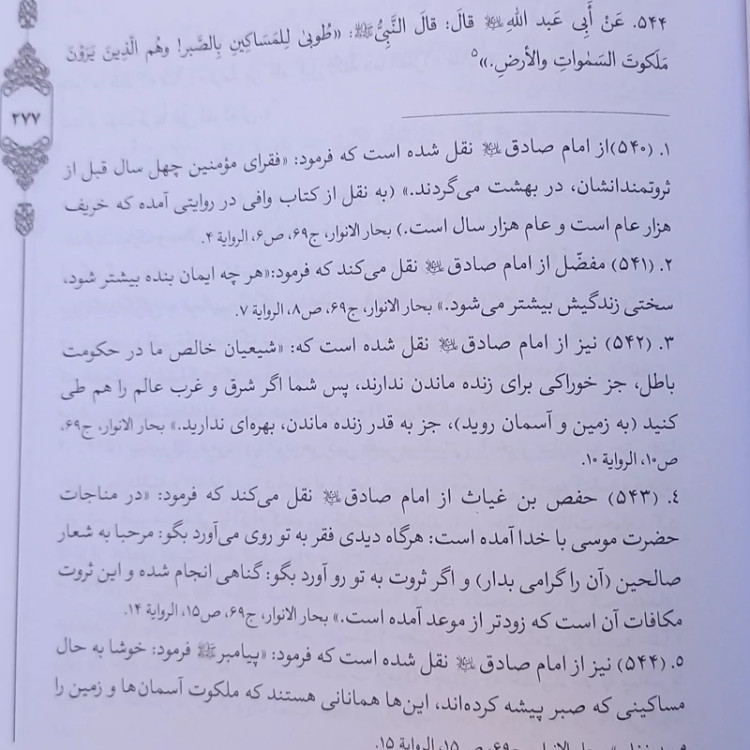 ۵۴۴. عَنْ أَبِی عَبد اللهِ قالَ: قالَ النَّبِیُّ: «طُوبیٰ لِلمَسَاکِینِ بِالصَّبرِ! وهُم الَّذِینَ یَرَوْنَ
مَلَکوتَ السَمٰواتِ والأرضِ.»۵
۲۷۷
۱. (۵۴۰)از امام صادق نقل شده است که فرمود: «فقرای مؤمنین چهل سال قبل از
ثروتمندانشان، در بهشت می‌گردند.» (به نقل از کتاب وافی در روایتی آمده که خریف
هزار عام است و عام هزار سال است.) بحار الانوار، ج۶۹، ص۶، الروایة ۴.
۲. (۵۴۱) مفضّل از امام صادق نقل می‌کند که فرمود:«هر چه ایمان بنده بیشتر شود،
سختی زندگیش بیشتر می‌شود.» بحار الانوار، ج۶۹، ص۸، الروایة ۷.
۳. (۵۴۲) نیز از امام صادق نقل شده است که: «شیعیان خالص ما در حکومت
باطل، جز خوراکی برای زنده ماندن ندارند، پس شما اگر شرق و غرب عالم را هم طی
کنید (به زمین و آسمان روید)، جز به قدر زنده ماندن، بهره‌ای ندارید.» بحار الانوار، ج۶۹،
ص۱۰، الروایة ۱۰.
۴. (۵۴۳) حفص بن غیاث از امام صادق نقل می‌کند که فرمود: «در مناجات
حضرت موسی با خدا آمده است: هرگاه دیدی فقر به تو روی می‌آورد بگو: مرحبا به شعار
صالحین (آن را گرامی بدار) و اگر ثروت به تو رو آورد بگو: گناهی انجام شده و این ثروت
مکافات آن است که زودتر از موعد آمده است.» بحار الانوار، ج۶۹، ص۱۵، الروایة ۱۴.
۵. (۵۴۴) نیز از امام صادق نقل شده است که فرمود: «پیامبر فرمود: خوشا به حال
مساکینی که صبر پیشه کرده‌اند، این‌ها همانانی هستند که ملکوت آسمان‌ها و زمین را
ج۶۹، ص۱۵، الروایة ۱۵.